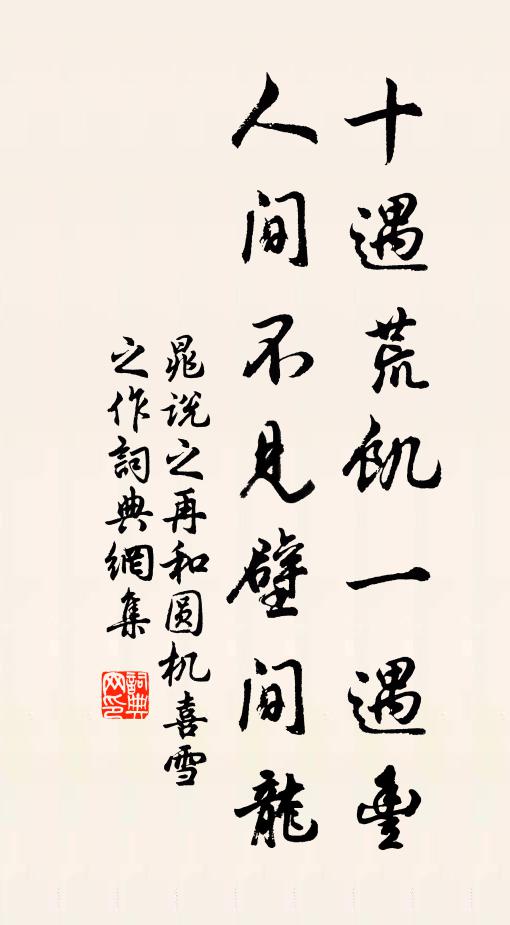 十遇荒飢一遇豐
人间不見壁间龍
晁说之再和圆机喜雪
之作詞典網集
詞典网印